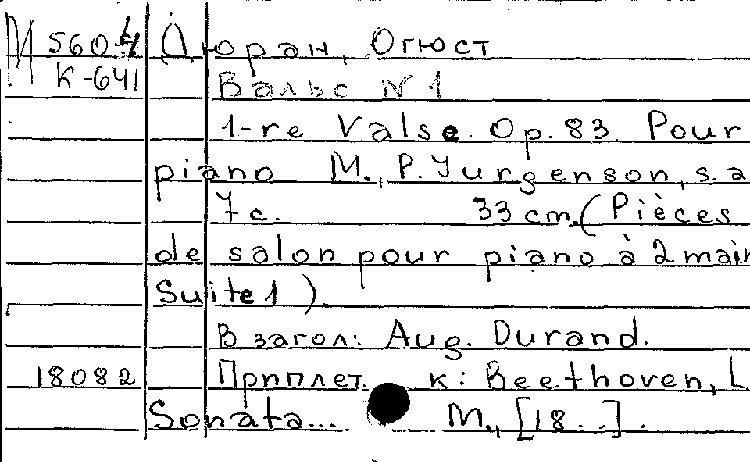 М 560-4 Дюран, Огюст
К-641 Вальс N 1
1-re Valse. Op. 83. Pour
piano M., P. Jurgenson, s.a
7 с. 33 cm. (Pièces
de salon pour piano à 2 main
Suite 1).
В загол: Aug. Durand.
18082 Приплет. к: Beethoven, L
Sonata... М., [18..].